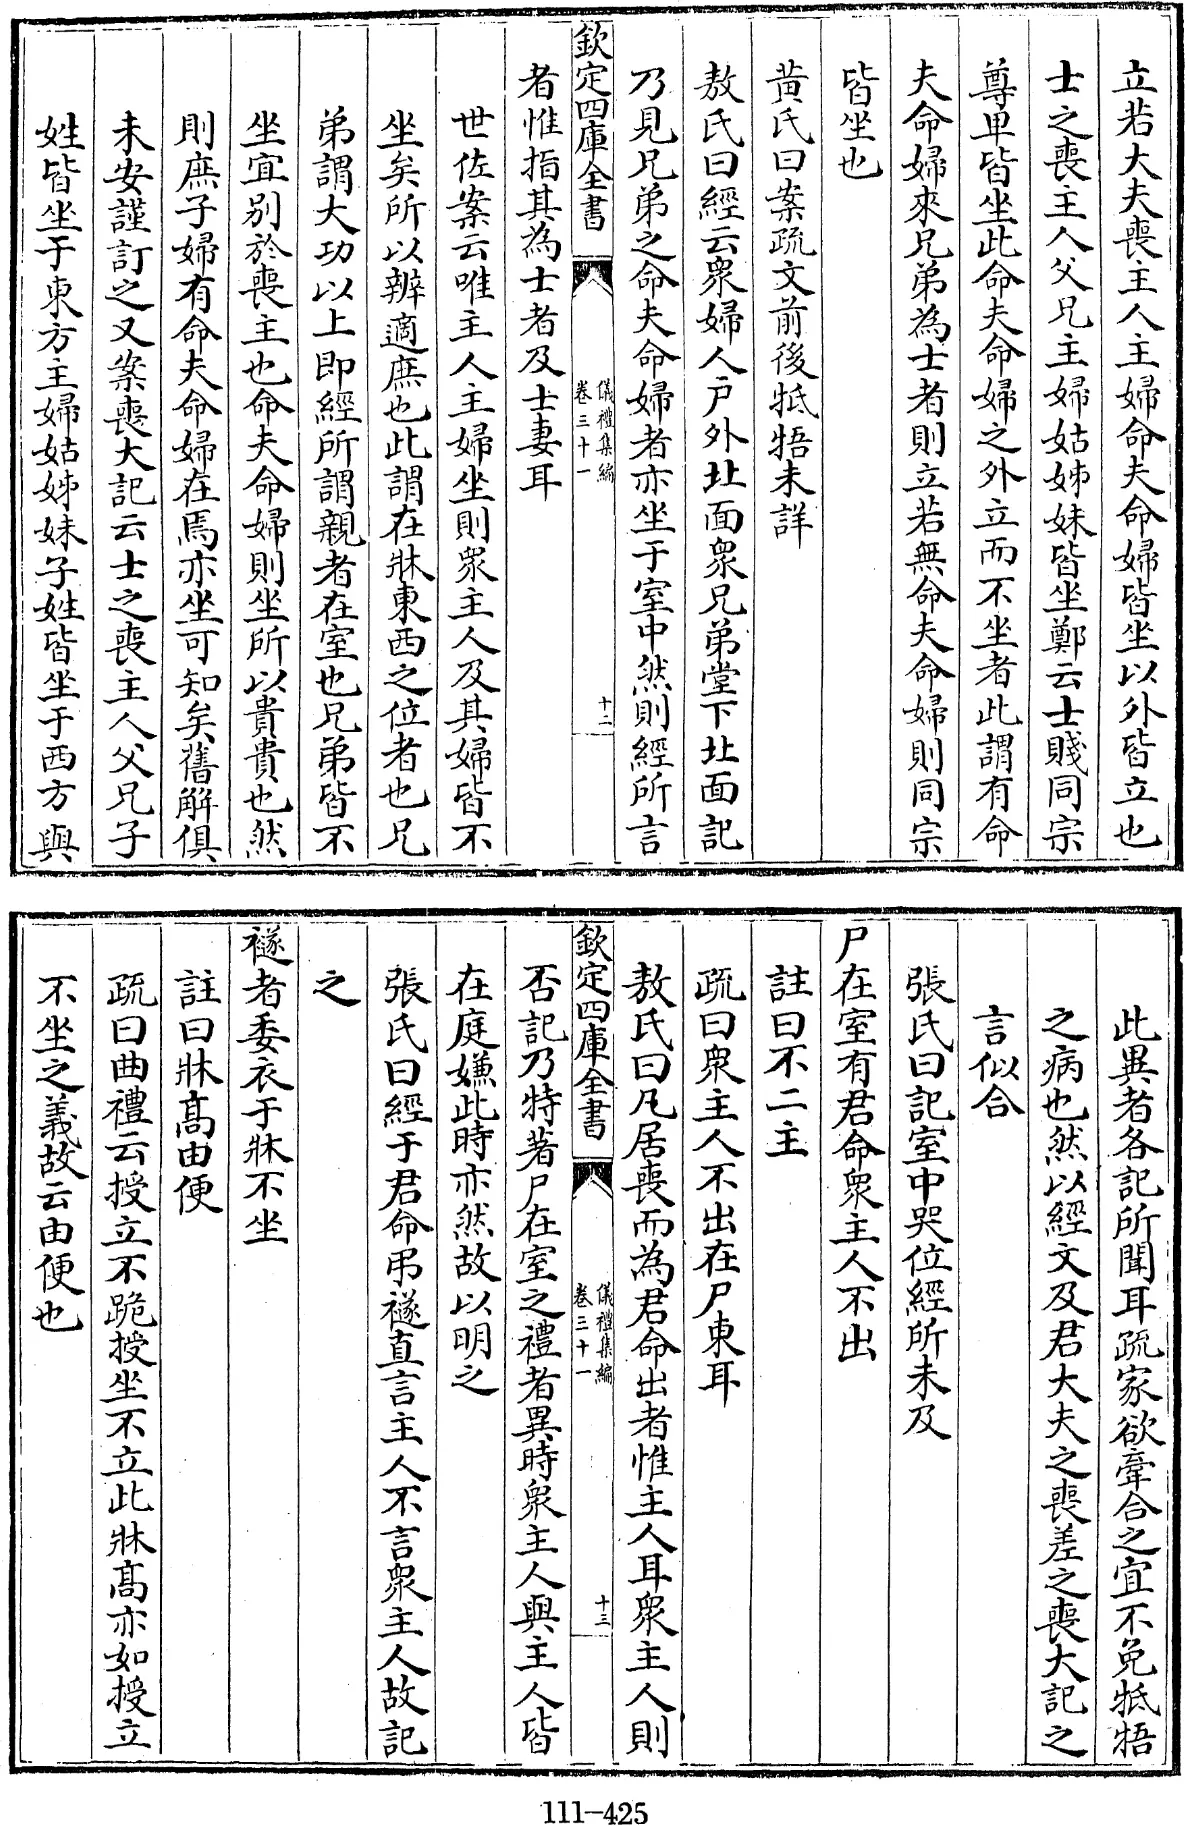 立若大夫喪主人主婦命夫命婦皆坐以外皆立也
士之喪主人父兄主婦姑姊妹皆坐鄭云士賤同宗
尊卑皆坐此命夫命婦之外立而不坐者此謂有命
夫命婦來兄弟為士者則立若無命夫命婦則同宗
皆坐也
黄氏曰案疏文前後牴牾未詳
敖氏曰經云衆婦人户外北面衆兄弟堂下北面記
乃見兄弟之命夫命婦者亦坐于室中然則經所言
者惟指其為士者及士妻耳
欽定四庫全書
儀禮集編
卷三十一
十二
世佐案云唯主人主婦坐則衆主人及其婦皆不
坐矣所以辨適庶也此謂在牀東西之位者也兄
弟謂大功以上即經所謂親者在室也兄弟皆不
坐宜别於喪主也命夫命婦則坐所以貴貴也然
則庶子婦有命夫命婦在焉亦坐可知矣舊解俱
未安謹訂之又案喪大記云士之喪主人父兄子
姓皆坐于東方主婦姑姊妹子姓皆坐于西方與
此異者各記所聞耳疏家欲牽合之宜不免牴牾
之病也然以經文及君大夫之喪差之喪大記之
言似合
張氏曰記室中哭位經所未及
尸在室有君命衆主人不出
註曰不二主
疏曰衆主人不出在尸東耳
敖氏曰凡居喪而為君命出者惟主人耳衆主人則
欽定四庫全書
儀禮集編
卷三十一
十三
否記乃特著尸在室之禮者異時衆主人與主人皆
在庭嫌此時亦然故以明之
張氏曰經于君命弔襚直言主人不言衆主人故記
之
襚者委衣于牀不坐
註曰牀髙由便
疏曰曲禮云授立不跪授坐不立此牀髙亦如授立
不坐之義故云由便也
111-425